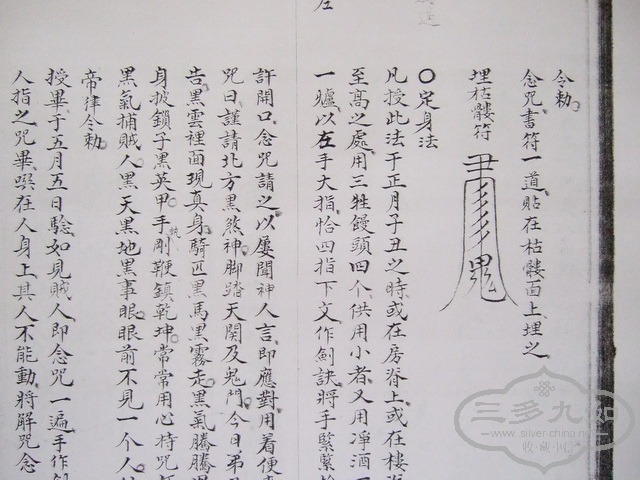 左
令勅
念咒書符一道貼在枯髏面上埋之
埋枯髏符
〇定身法
凡授此法于正月子丑之時或在房脊上或在樓
至髙之處用三牲饅頭四个供用小者又用渾酒
一爐以左手大指恰四指下文作劍訣將手緊緊
許開口念咒請之以屢聞神人言即應對用着便
咒曰謹請北方黑煞神脚踏天關及鬼門今日弟
告黑雲裡面現真身騎匹黑馬黑霧走黑氣騰騰
身披鎖子黑英甲手執剛鞭鎮乾坤常常用心持咒
黑氣捕賊人黑天黑地黑事眼眼前不見一个人
帝律令勅
授畢于五月五日騐如見賊人即念咒一遍手作劍
人指之咒畢噀在人身上其人不能動將解咒念
三多九如